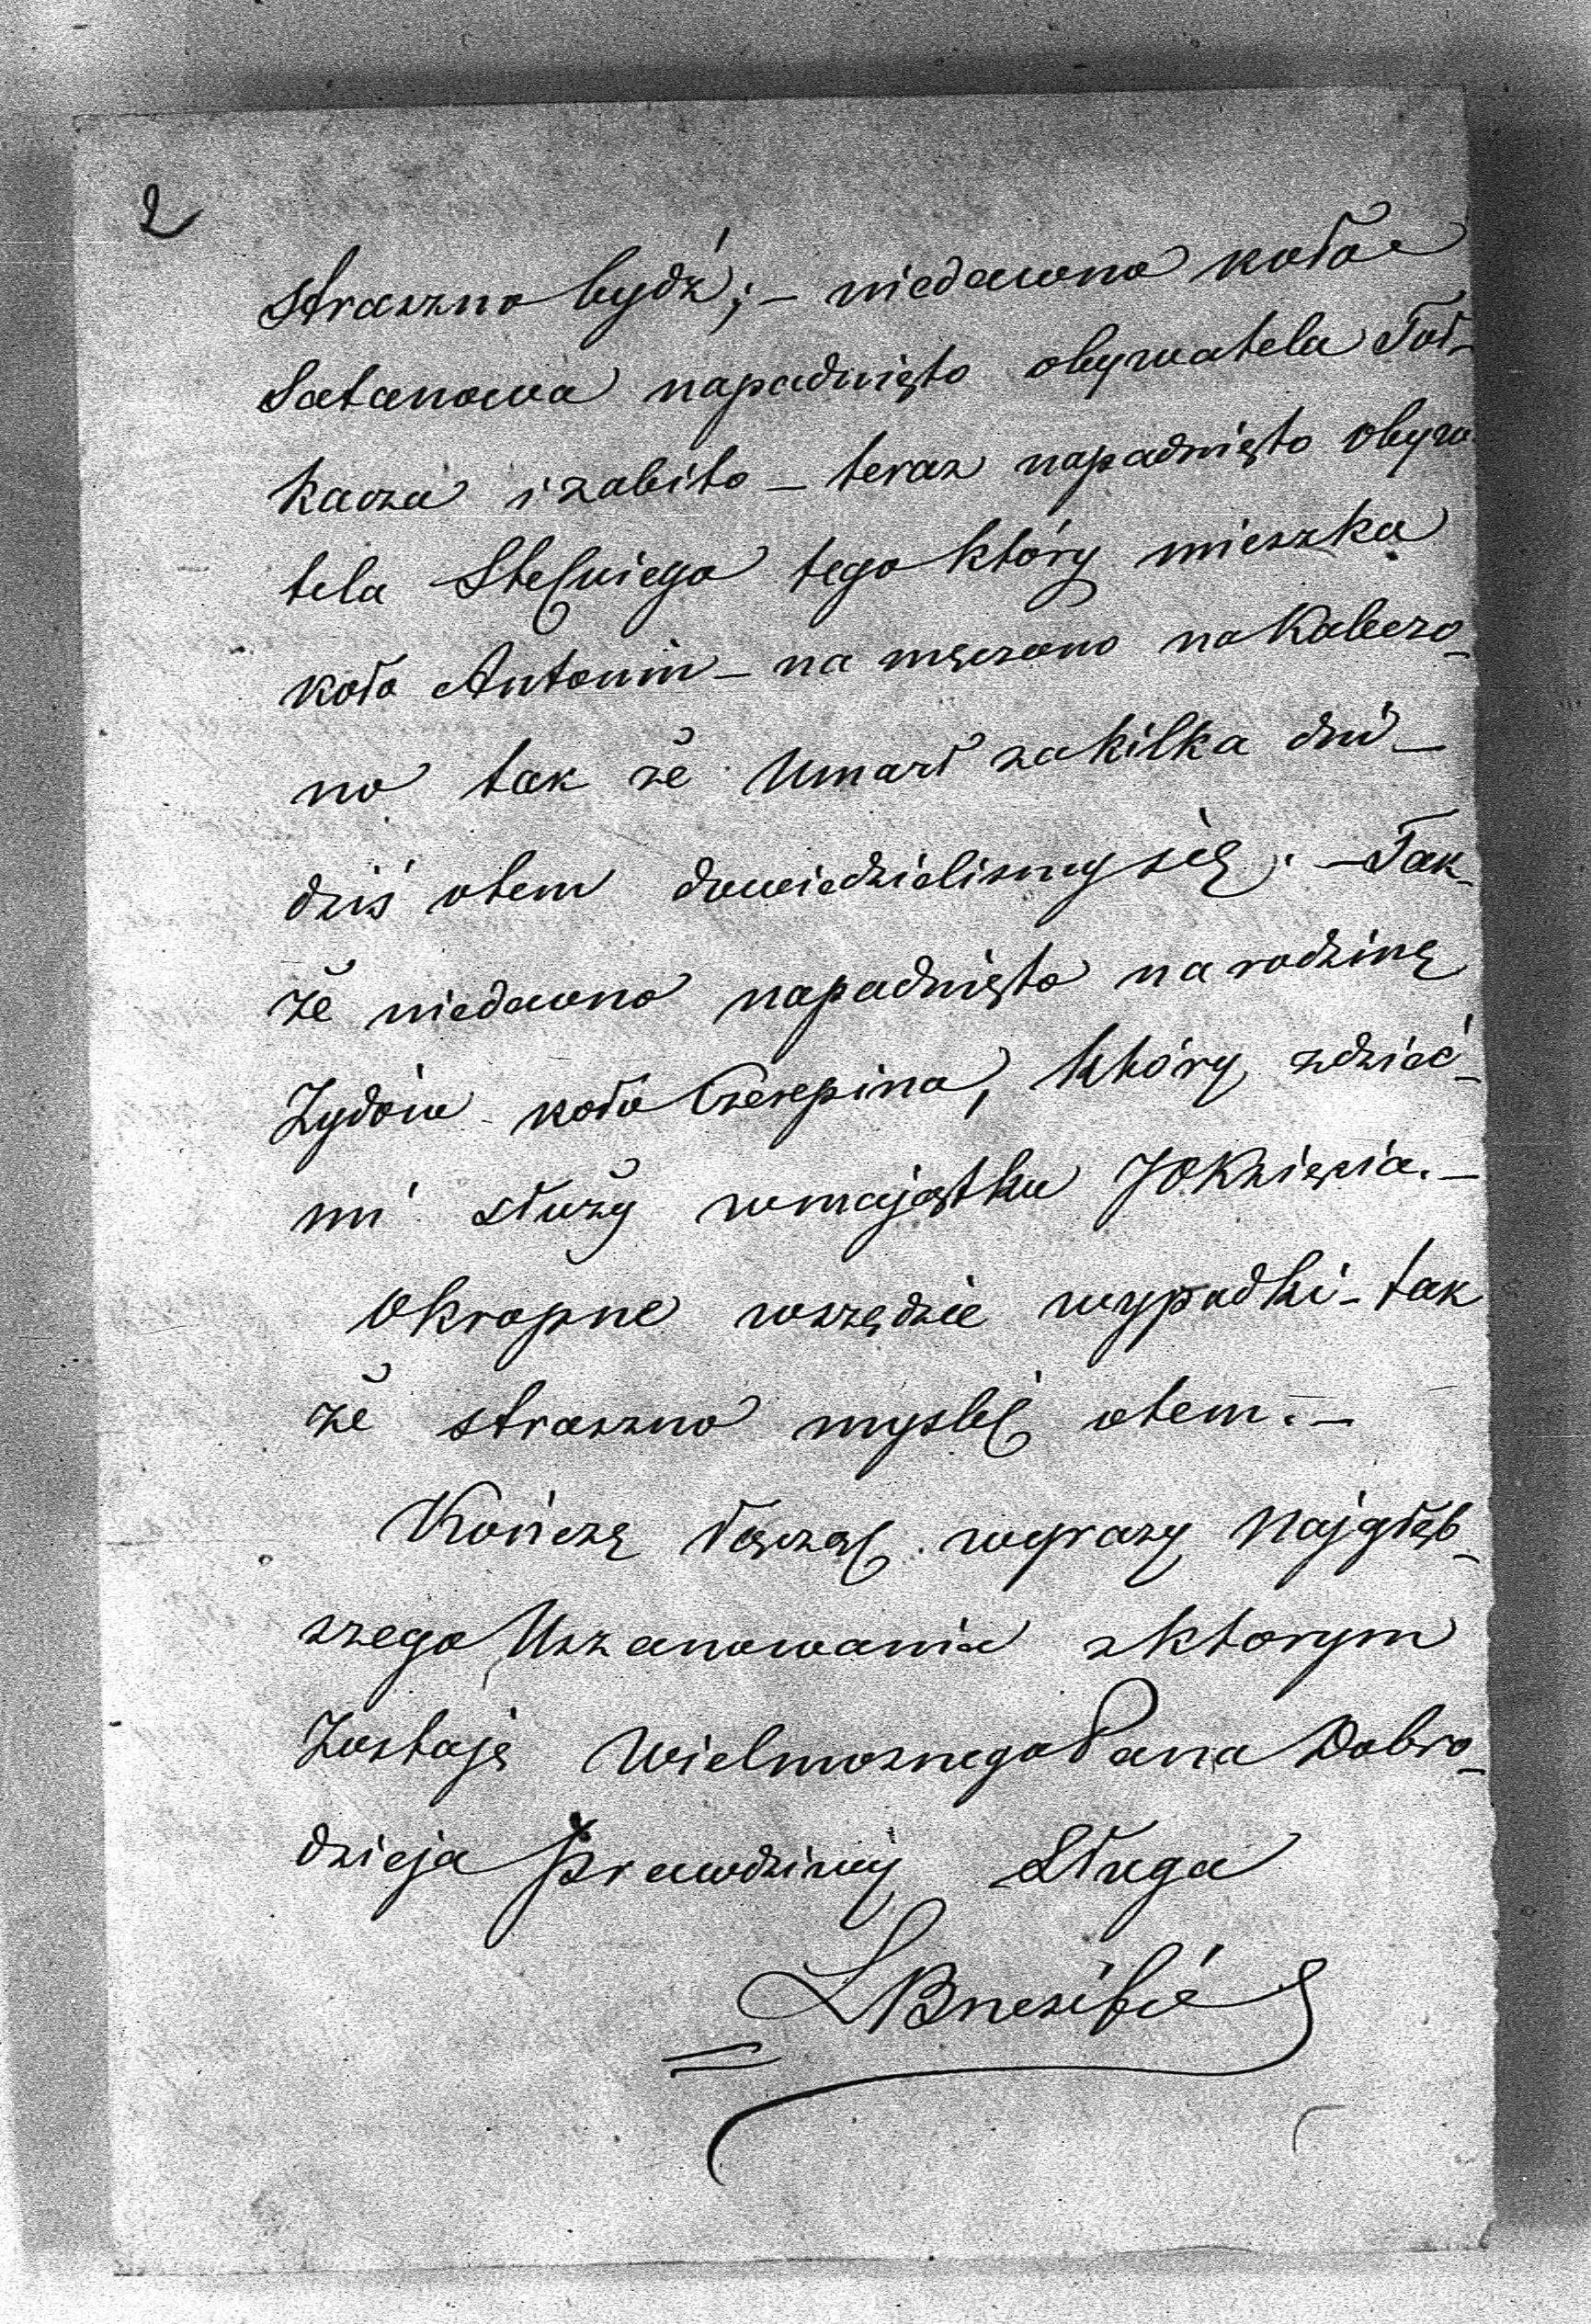 2
straszno bydź; – niedawno koło
Satanowa napadnięto obywatela Toł-
kacza i zabito – teraz napadnięto obywa
tela tego który mieszka
koło Antonin – na męczono na Kaleczo-
no tak że Umarł za kilka dni –
dziś otem dowiedzielismy się. – Tak-
że niedawno napadnięto na rodzinę
Żydów koło Czerepina, który zdzieć-
mi służy wmajątku JOKsięcia. –
Okropne wszędzie wypadki – tak
że straszno mysleć otem. –
Kończę łącząc wyrazy Najgłęb-
szego Uszanowania zktorym
Zostaję Wielmoznego Pana Dobro-
dzieja prawdziwy Sługa